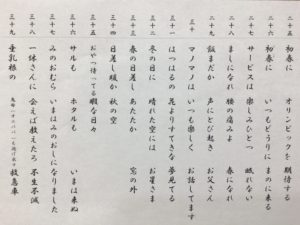 二十五 初春に オリンピックを 期待する
二十六 初春に いつもどうりに まのに来る
二十七 サービスは 楽しみひとつ 眠れない
二十八 ましになれ 腰の痛みよ 春になれ
二十九 飯まだか 声にとび起き お父さん
三十 マノマノは いつも楽しく お話してます
三十一 はつはるの 花よりすてきな 夢見てる
三十二 冬の日に 晴れた空には お星さま
三十三 春の日差し あたたか 窓の外
三十四 日差し暖か 秋の空
三十五 おやつ待ってる 暇な日々
三十六 サルも ホタルも いまは来ぬ
三十七 みのおむら いまはみのおしになりました
三十八 一休さんに 会えば教えたろ 不生不滅
三十九 垂乳根の 救急車